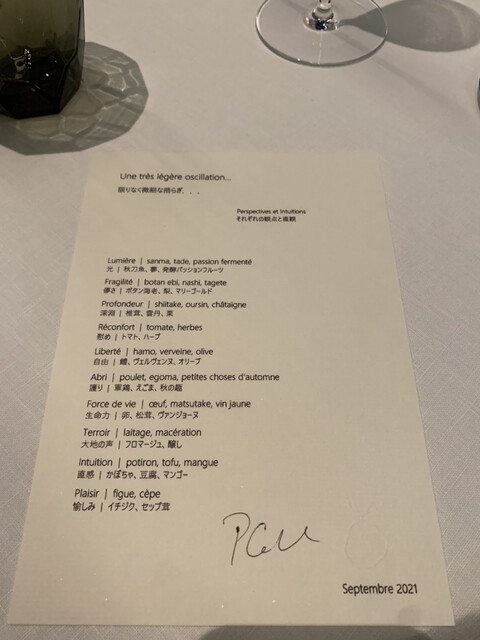 Une très légère oscillation...
限りなく微細な揺らぎ. . .
Perspectives et Intuitions
それぞれの観点と直観
Lumière | sanma, tade, passion fermenté
光 | 秋刀魚、蓼、発酵パッションフルーツ
Fragilité | botan ebi, nashi, tagete
儚さ | ボタン海老、梨、マリーゴールド
Profondeur | shiitake, oursin, châtaigne
深淵 | 椎茸、雲丹、栗
Réconfort | tomate, herbes
慰め | トマト、ハーブ
Liberté | hamo, verveine, olive
自由 | 鱧、ヴェルヴェンヌ、オリーブ
Abri | poulet, egoma, petites choses d'automne
護り | 軍鶏、えごま、秋の趣
Force de vie | œuf, matsutake, vin jaune
生命力 | 卵、松茸、ヴァンジョーヌ
Terroir | laitage, macération
大地の声 | フロマージュ、醸し
Intuition | potiron, tofu, mangue
直感 | かぼちゃ、豆腐、マンゴー
Plaisir | figue, cèpe
愉しみ | イチジク、セップ茸
Septembre 2021